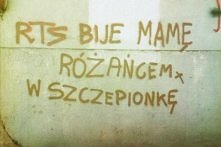 RTS BIJE MAMĘ
RÓŻAŃCEM
W SZCZEPIONKĘ